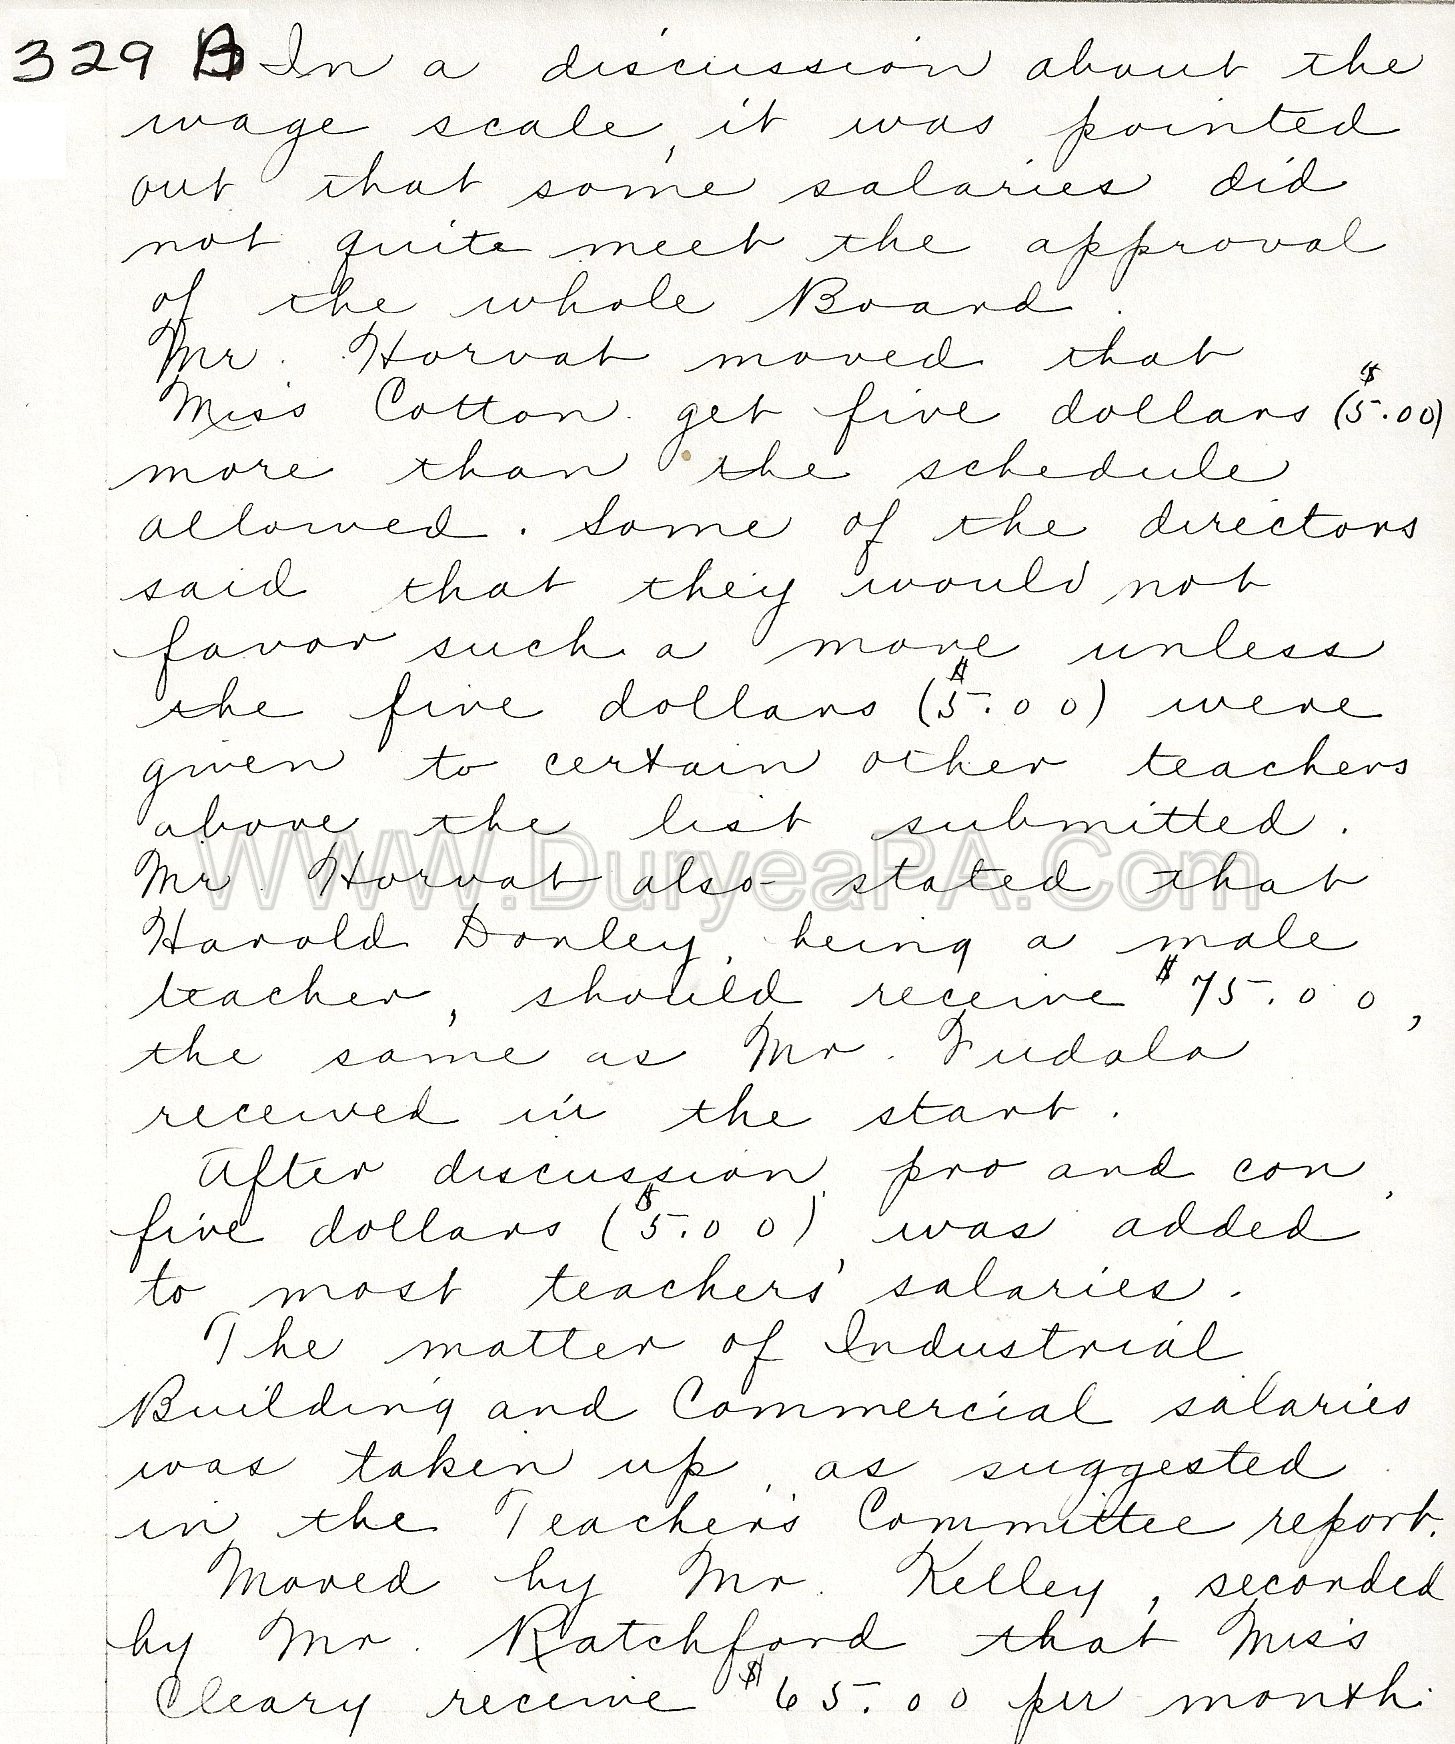 329 B In a discussion about the
wage scale, it was pointed
out that some salaries did
not quite meet the approval
of the whole Board.
Mr. Horvat moved that
Miss Cotton get five dollars ($5.00)
more than the schedule
allowed. Some of the directors
said that they would not
favor such a move unless
the five dollars ($5.00) were
given to certain other teachers
above the list submitted.
WWW.DuryeaPA.Com
Mr. Horvat also stated that
Harold Donley, being a male
teacher, should receive $75.00,
the same as Mr. Fudala
received in the start.
After discussion, pro and con,
five dollars ($5.00) was added
to most teachers' salaries.
The matter of Industrial
Building and Commercial salaries
was taken up, as suggested
in the Teacher's Committee report.
Moved by Mr. Kelley, seconded
by Mr. Ratchford that Miss
Cleary receive $65.00 per month.